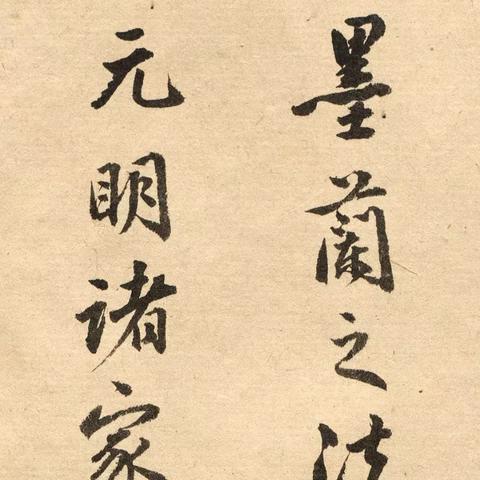 墨蘭之法
元明諸家